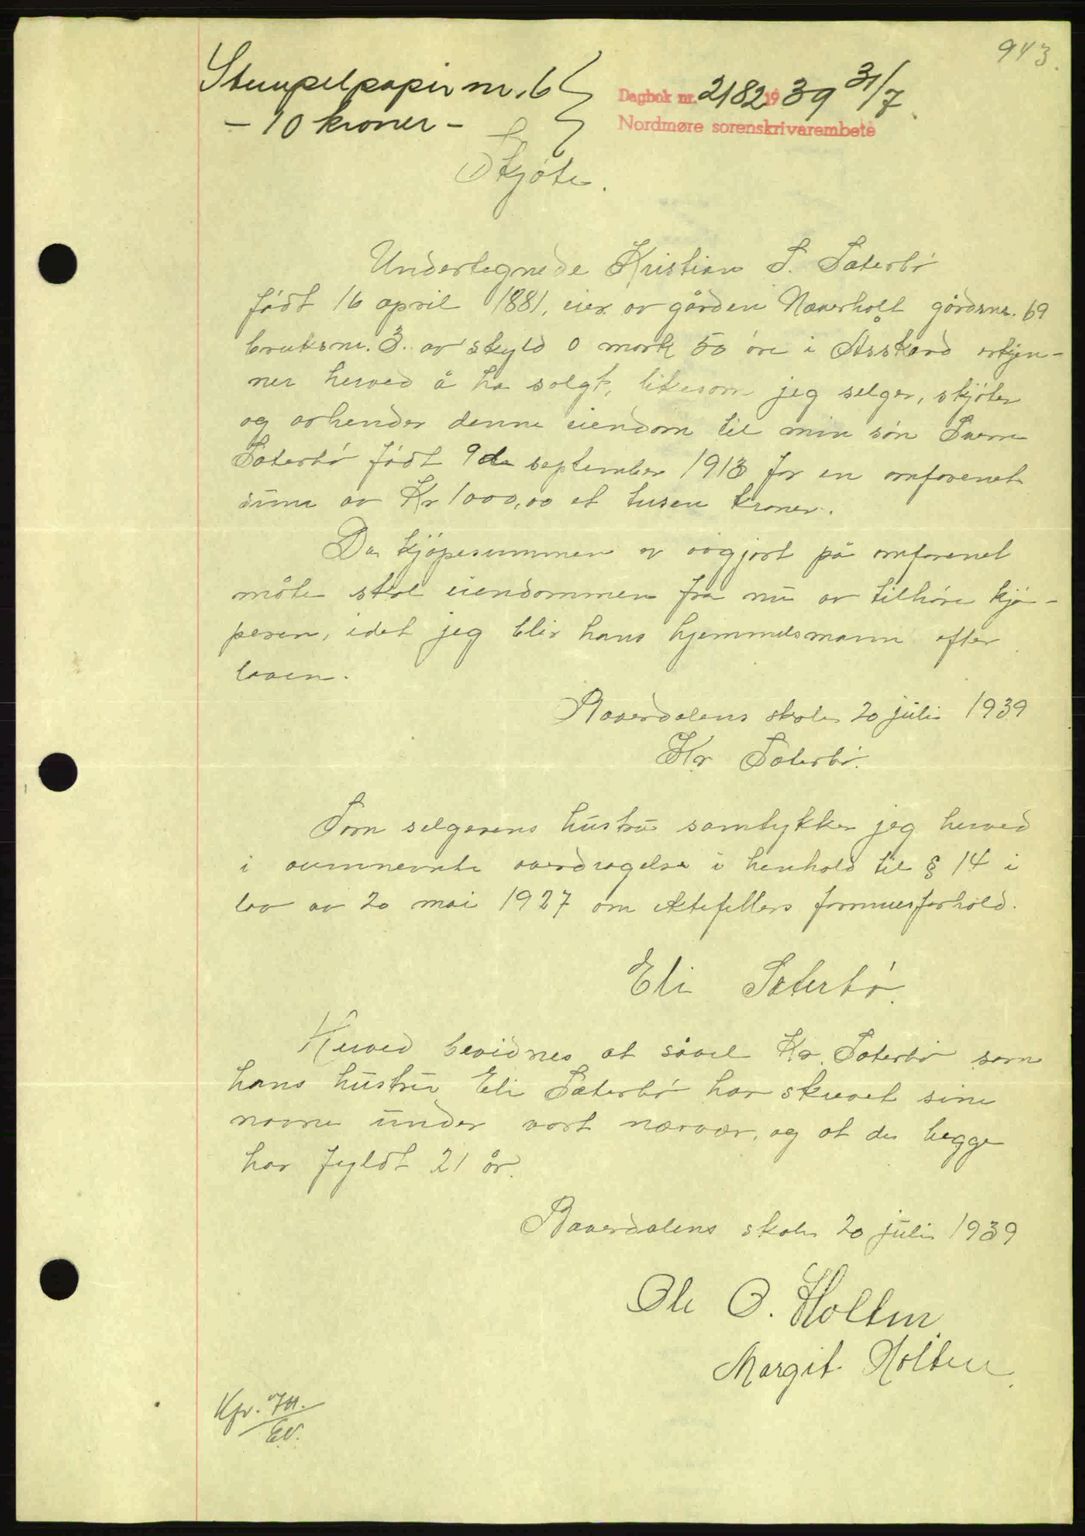 943.
Stempelpapir nr. 6
- 10 kroner -
Dagbok nr. 2182 1939 31/7.
Nordmøre sorenskrivarembete
Skjøte.
Undertegnede Kristian S. Sæterbø
født 16 april 1881, eier av gården Næverholt gårdsnr. 69
bruksnr. 3. av skyld 0 mark 50 øre i Åsskard erkjen-
ner herved å ha solgt, likesom jeg selger, skjøter
og avhender denne eiendom til min søn
Sæterbø født 9de september 1913 for en omforenet
sum av Kr 1000,00 et tusen kroner.
Da kjøpesummen er avgjort på omforenet
måte skal eiendommen fra nu av tilhøre kjø-
peren, idet jeg blir hans hjemmelsmann efter
loven.
Bæverdalens skole 20 juli 1939
Kr Sæterbø.
Som selgerens hustru samtykker jeg herved
i ovennevnte overdragelse i henhold til § 14 i
lov av 20 mai 1927 om ektefellers formuesforhold.
Eli Sæterbø.
Herved bevidnes at såvel Kr. Sæterbø som
hans hustru Eli Sæterbø har skrevet sine
navne under vort nærvær, og at de begge
har fyldt 21 år.
Bæverdalens skole 20 juli 1939
Ole O. Holten
Margit Holten.
Kfr.
EV.